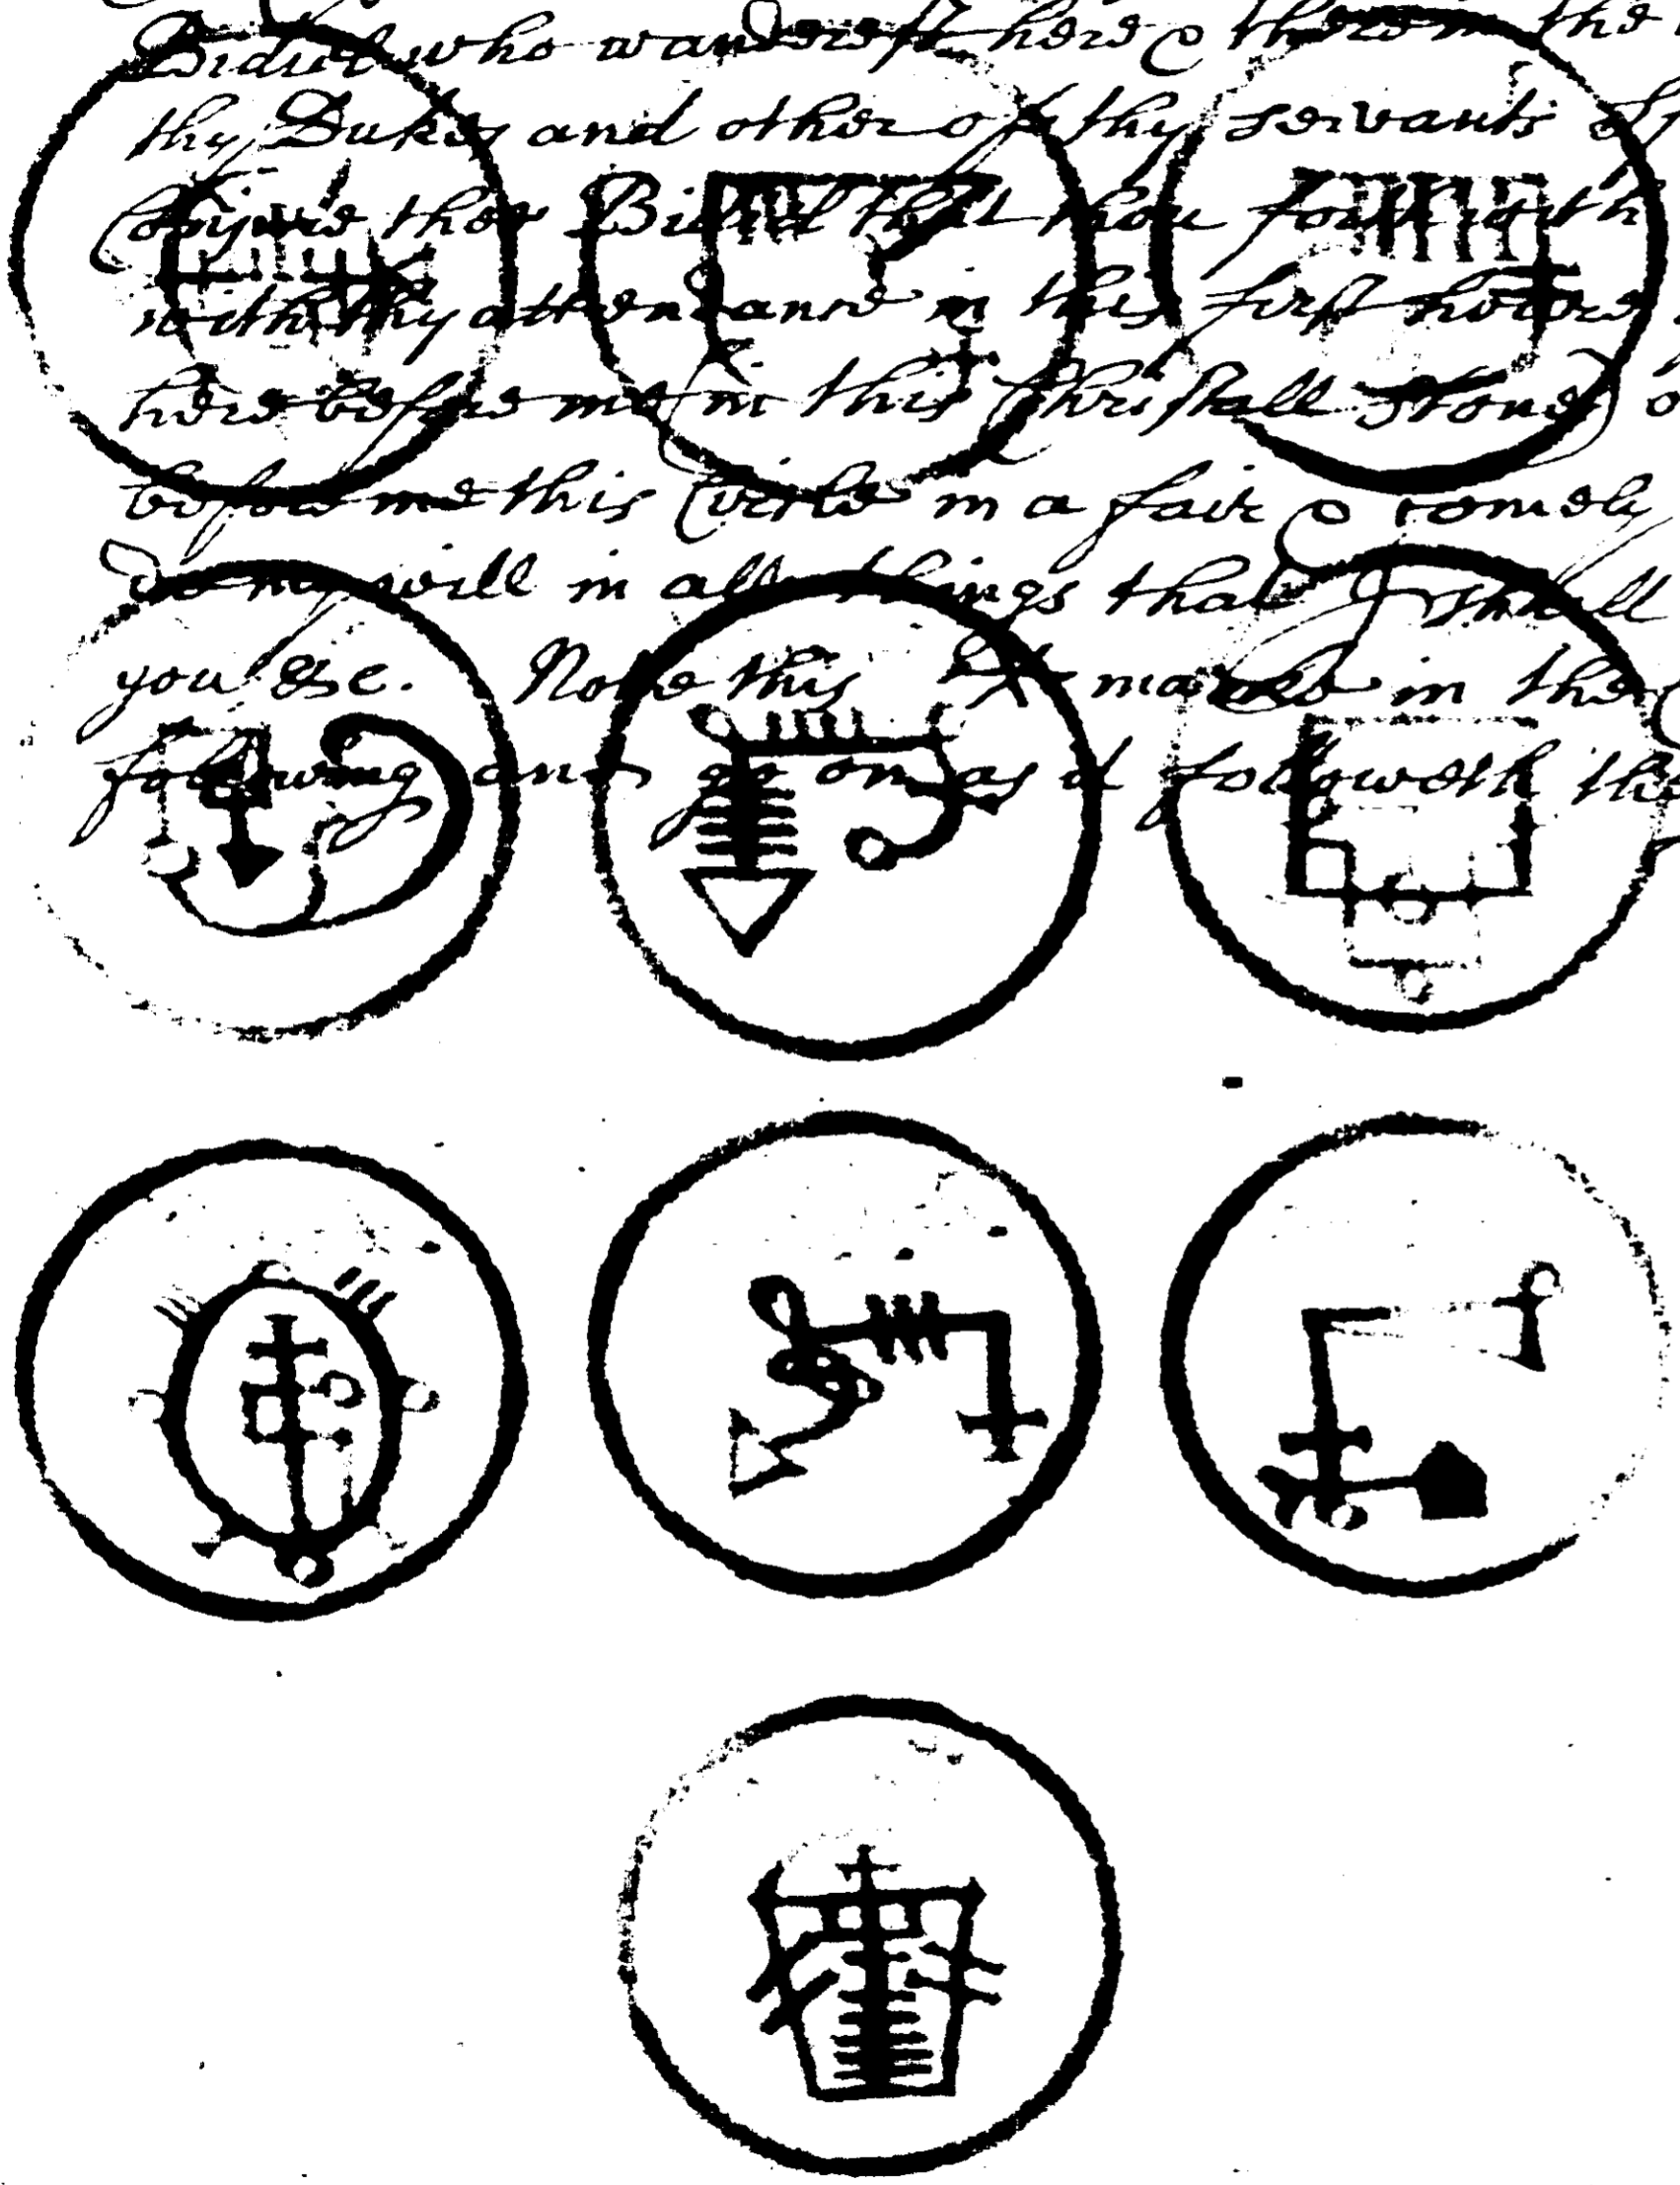 Bidiel who wanderest here & there in the
thy Dukes and other of thy servants
Conjure thee Bidiel that thou forthwith
with thy attendance in this first houre
here before me in this Christall stone
before me this Circle in a faire & comely
do my will in all things that I shall
you &c. Note this marke in the
following and go on as it followeth